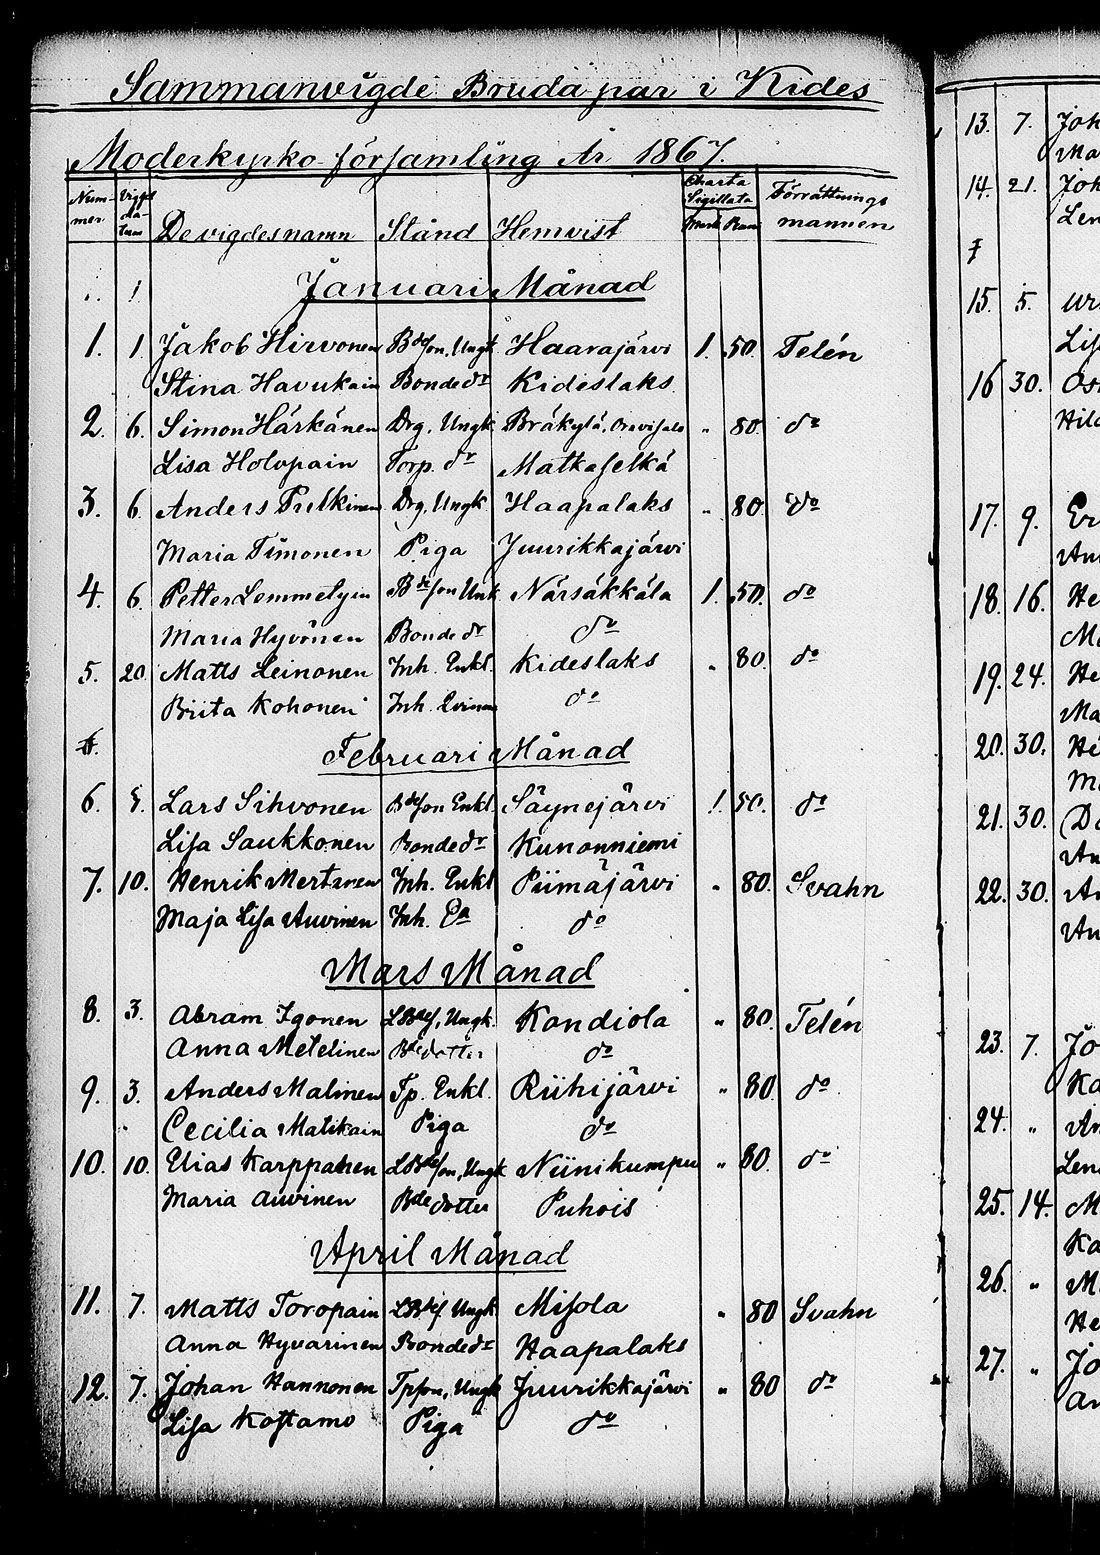 Sammanvigde Brudapar i Kides
Moderkyrko-församling År 1867.
Num-mer Vigsel da-tum De vigdes namn Stånd Hemvist Charta Sigillata Mark Penni Förrättnings mannen
Januari Månad
1. 1. Jakob Hirvonen Bdeson, Ungk Haarajärvi 1. 50. Telén
Stina Havukain Bonde dr Kideslaks
2. 6. Simon Härkänen Drg, Ungk Bråkylä, " 80. do
Lisa Holopain Torp. dr Matkaselkä
3. 6. Anders Pulkinen Drg, Ungk Haapalaks " 80. do
Maria Timonen Piga Juurikkajärvi
4. 6. Petter Lemmetyin Bdeson Unk Närsäkkälä 1. 50. do
Maria Hyvönen Bonde dr do
5. 20. Matts Leinonen Inh. Enkl. Kideslaks " 80. do
Brita Kohonen Inh. do
Februari Månad
6. Lars Sihvonen Bdeson Enkl. Säynejärvi 1. 50. do
Lisa Saukkonen Bonde dr Kunonniemi
7. 10. Henrik Mertanen Inh. Enkl Piimäjärvi " 80. Svahn
Maja Lisa Auvinen Inh. Ea do
Mars Månad
8. 3. Abram Igonen LBdes, Ungk. Kondiola " 80. Telén
Anna Metelinen Bdedotter do
9. 3. Anders Malinen Tp. Enkl. Riihijärvi " 80. do
Cecilia Matikain Piga do
10. 10. Elias Karppanen LBdeson, Ungk Niinikumpu " 80. do
Maria Auvinen Bdedotter Puhois
April Månad
11. 7. Matts Toropain LBdes. Ungk Misola " 80 Svahn
Anna Hyvärinen Bondedr Haapalaks
12. 7. Johan Hannonen Tpson, Ungk Juurikkajärvi " 80 do
Lisa Kostamo Piga do
13. 7. Joh
Ma
14. 21. Joh
Len
15. 5. Ur
Lis
16 30. Os
Hild
17. 9. Er
An
18. 16. He
Ma
19. 24. He
Ma
20. 30. He
Ma
21. 30. Da
An
22. 30. An
An
23. 7. Jo
Ka
24. " An
Len
25. 14. M
Ka
26. " M
He
27. " Jo
An